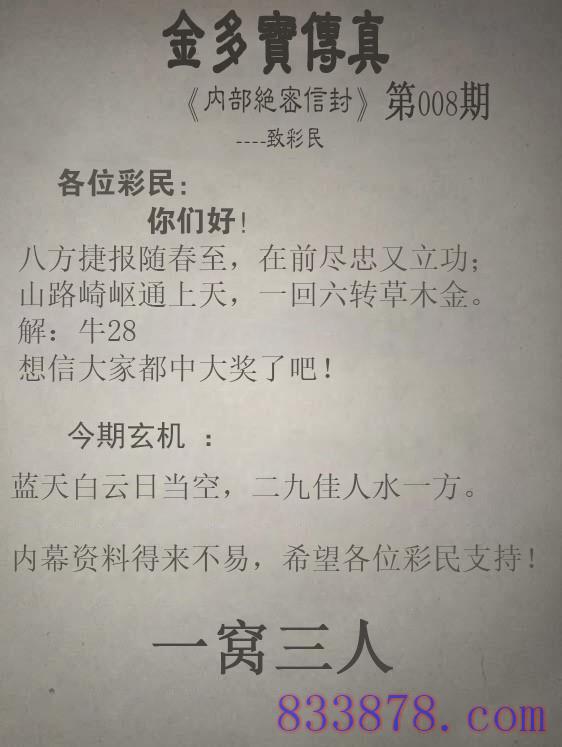 金多寳傳真
《内部絶密信封》第008期
----致彩民
各位彩民：
你们好！
八方捷报随春至，在前尽忠又立功；
山路崎岖通上天，一回六转草木金。
解：牛28
想信大家都中大奖了吧！
今期玄机 ：
蓝天白云日当空，二九佳人水一方。
内幕资料得来不易，希望各位彩民支持！
一窝三人
833878.com